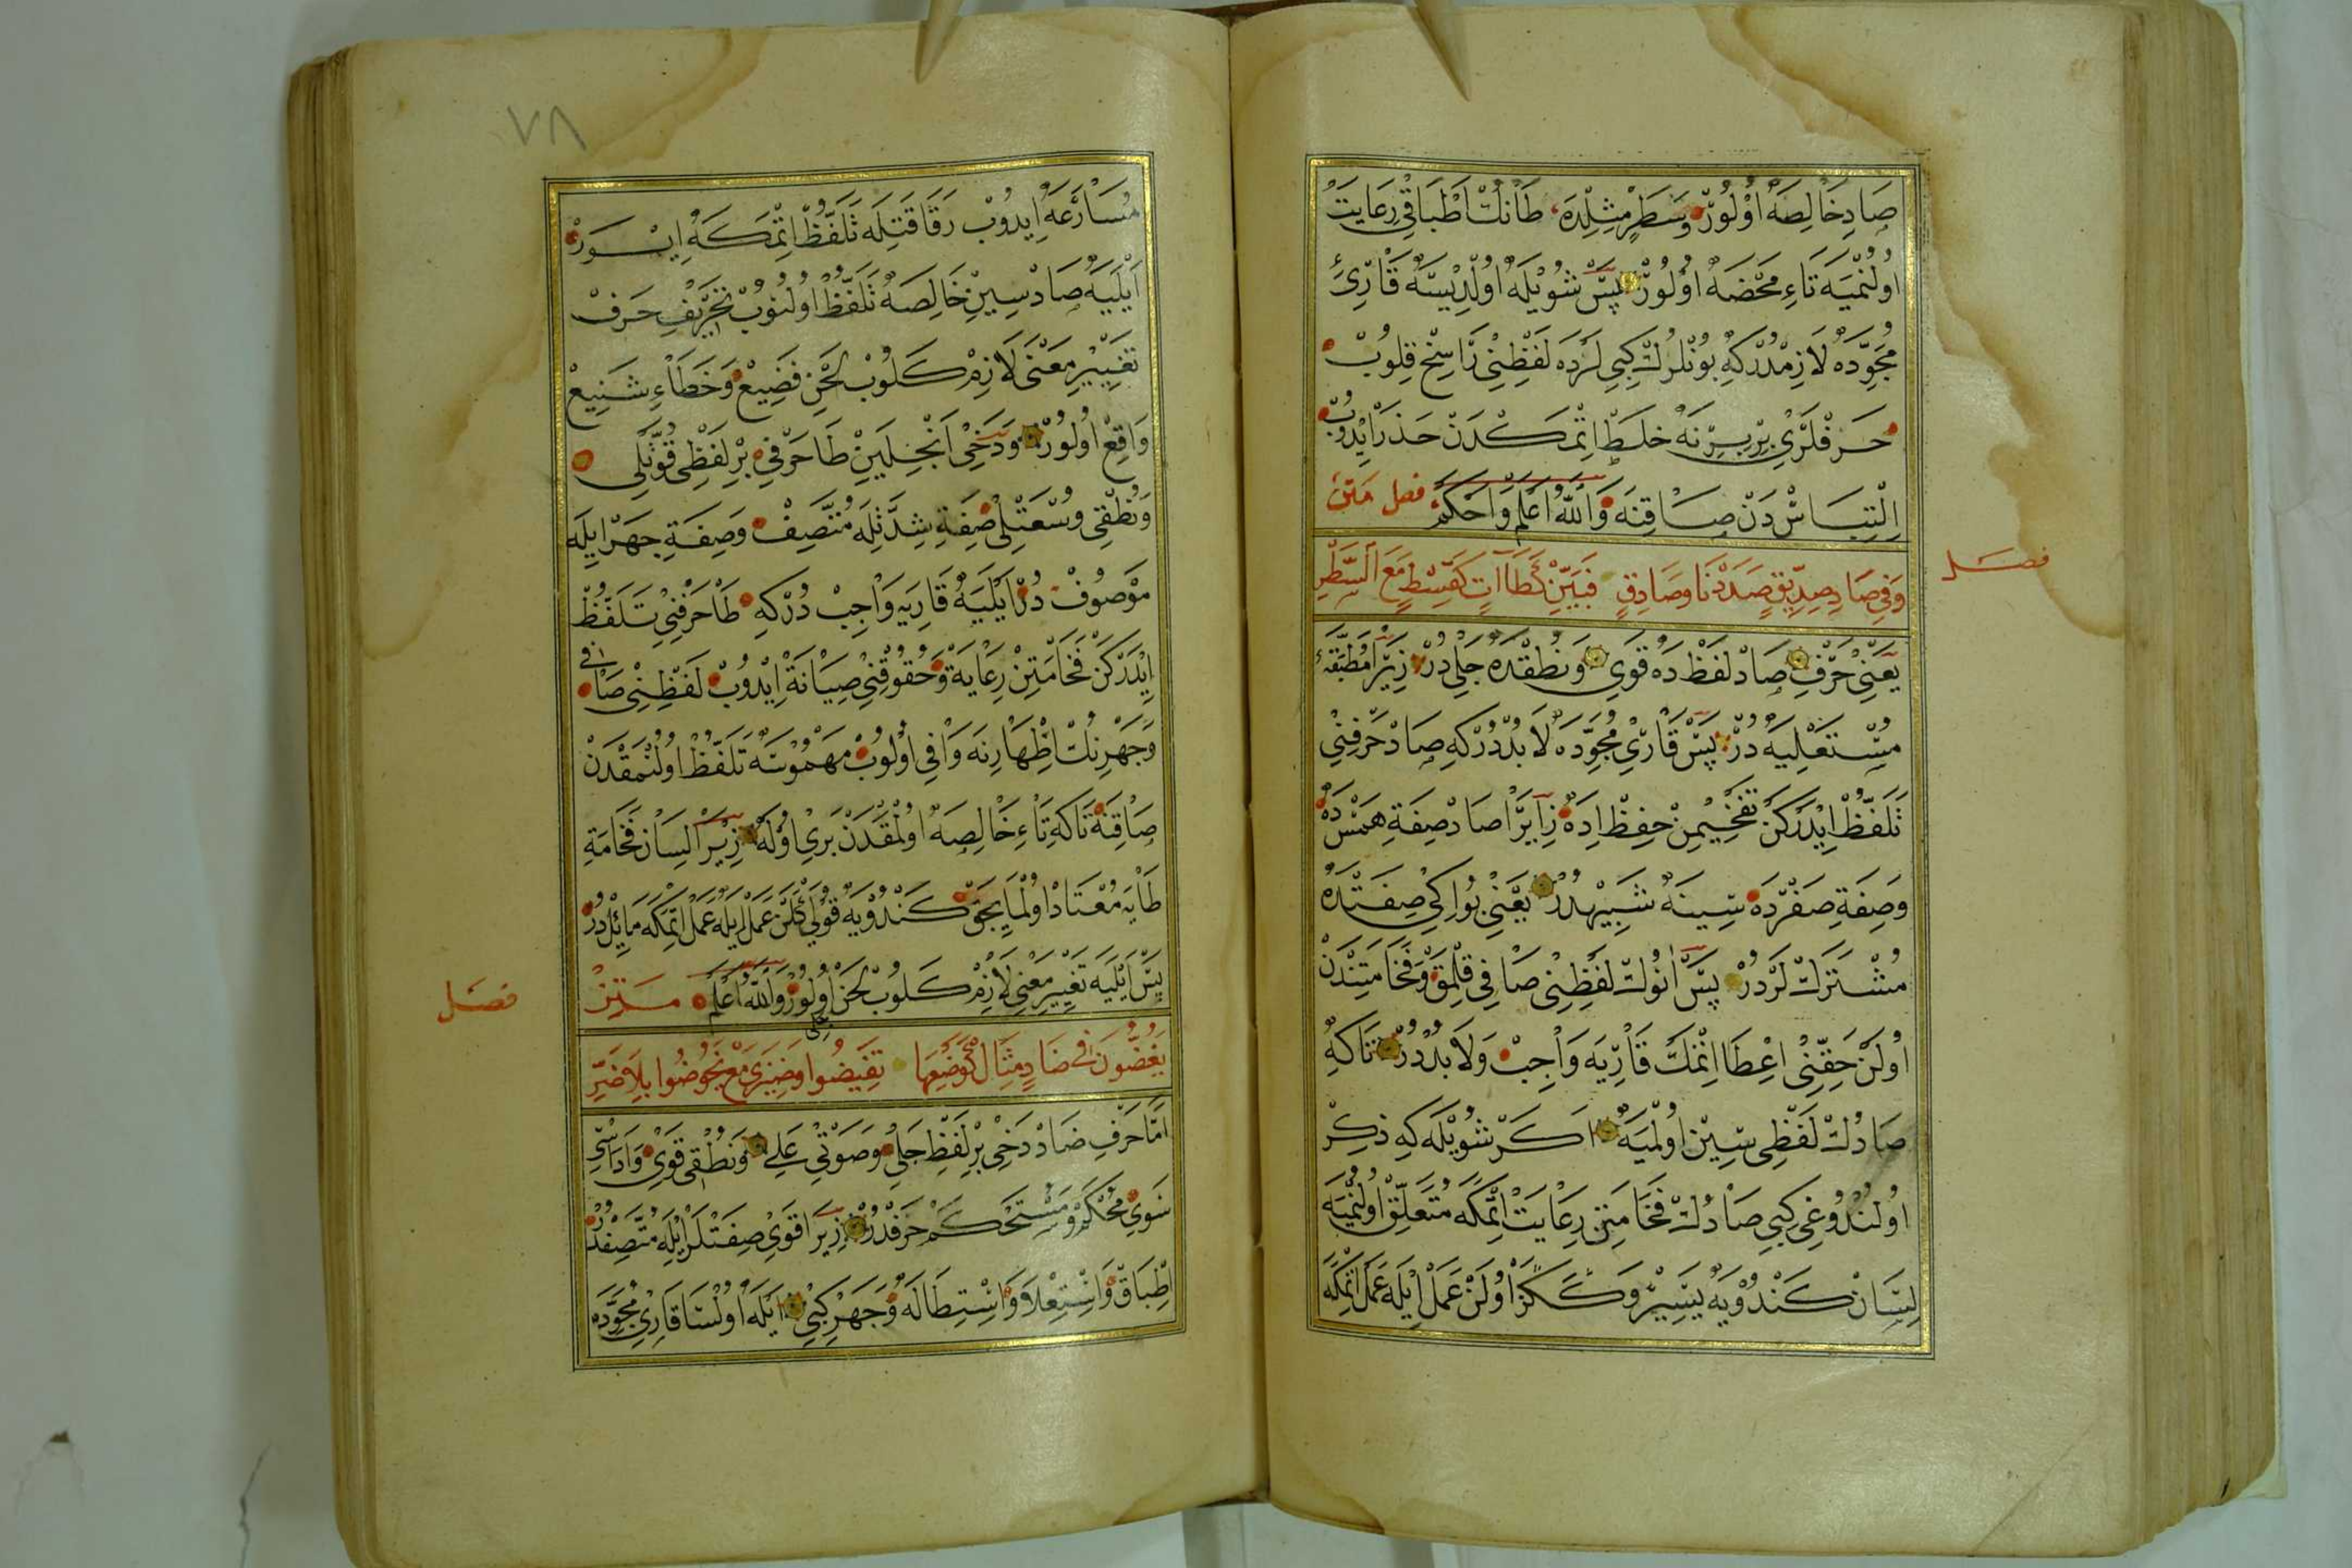 صَادِ خَالِصَه اُوْلُورْ وَسَطْرٍ مِثْلِدَه طَانُكْ اَطْبَاقِ رِعَايَتْ
اُولُنْمَيَه تَاءِ مَحْضَه اُولُورْ پَسْ شُويْلَه اُولْدِيسَه قَارِئِ
مُجَوِّدَه لَازِمْدُرْكِه بُونْلَرُكْ كِبِي لَرْدَه لَفْظِنِي رَاسِخْ قِلُوبْ
حَرْفْلَرِي بِرْبِرِنَه خَلَطْ اِتْمَكْدَنْ حَذَرْ اِيْدُوبْ
اِلْتِبَاسْدَنْ صَاقِنَه وَاللّٰهُ اَعْلَمُ وَاَحْكَمُ فصل مَتن
وَفِي صَادِ صِدِّيقٍ صَدَدْنَا وَصَادِقٍ فَبَيِّنْ كَطَاآتٍ كَقِسْطٍ مَعَ السَّطْرِ
فصل
يَعْنِي حَرْفِ صَادْ لَفْظْدَه قَوِي وَنُطْقْدَه جَلِي دُرْ زِيرَا مُطْبَقَه
مُسْتَعْلِيَه دُرْ پَسْ قَارِئِ مُجَوِّدَه لَابُدْدُرْكِه صَادْ حَرْفِنِي
تَلَفُّظْ اِيْدَرْكَنْ تَفْخِيمِنْ حِفْظْ اِدَه زِيرَا صَادْ صِفَةِ هَمْسْدَه
وَصِفَةِ صَفْرْدَه سِينَه شَبِيهْدُرْ يَعْنِي بُو اِكِي صِفَتْدَه
مُشْتَرَكْ لَرْدُرْ پَسْ اَنُوكْ لَفْظِنِي صَافِي قِلْمَقْ وَفَخَامَتِنْدَنْ
اُولَنْ حَقِّنِي اِعْطَا اِتْمَكْ قَارِيَه وَاجِبْ وَلَابُدْدُرْ تَاكِه
صَادُكْ لَفْظِي سِينْ اُولْمَيَه اَكَرْ شُويْلَه كِه ذِكِرْ
اُولُنْدُوغِي كِبِي صَادُكْ فَخَامَتِنْ رِعَايَتْ اِتْمَكَه مُتَعَلِّقْ اُولُنْمَيَه
لِسَانْ كَنْدُويَه يَسِيرْ وَكَكَزْ اُولَنْ عَمَلْ اِيلَه عَمَلْ اِتْمَكَه
٧٨
مُسَارَعَه اِيدُوبْ رَقَاقَتِلَه تَلَفُّظْ اِتْمَكَه اِيسَوَرْ
اَيْلَيَه صَادْ سِينِ خَالِصَه تَلَفُّظْ اُولُنُوبْ تَحْرِيفِ حَرْفْ
تَغْيِيْرِ مَعْنَى لَازِمْ كَلُوبْ لَحْنِ فَضِيعْ وَخَطَاءِ شَنِيعْ
وَاقِعْ اُولُورْ وَدَخِي اَنْجِلَيِنْ طَا حَرْفِي بِرْ لَفْظِي قُوَّتْلِي
وَنُطْقِي وُسْعَتْلِي صِفَةِ شِدَّتْلَه مُتَّصِفْ وَصِفَةِ جَهْرْ اِيلَه
مَوْصُوفْ دُرْ اَيْلَيَه قَارِيَه وَاجِبْ دُرْكِه طَا حَرْفِنِي تَلَفُّظْ
اِيْدَرْكَنْ فَخَامَتِنْ رِعَايَةْ وَحُقُوقِنِي صِيَانَةْ اِيْدُوبْ لَفْظِنِي صَافِي
وَجَهْرِنُكْ اِظْهَارِنَه وَافِي اُولُوبْ مَهْمُوسَه تَلَفُّظْ اُولُنْمَقْدَنْ
صَاقِنَه تَاكِه تَاءِ خَالِصَه اُولْمَقْدَنْ بَرِي اُولَه زِيرَا لِسَانْ فَخَامَةِ
طَايَه مُعْتَادْ اُولْمَايِجَقْ كَنْدُويَه قُولَيْ كَلَنْ عَمَلْ اِيلَه عَمَلْ اِتْمَكَه مَائِلْ دُرْ
پَسْ اَيْلَيَه تَغْيِيرِ مَعْنِي لَازِمْ كَلُوبْ لَحْنِ جَلِي اُولُورْ وَاللّٰهُ اَعْلَمْ مَتِنْ
فصل
يَغُضُّونَ فِي ضَادٍ مِثَال كَوَضْعِهَا تَفِيضُوا وَضِيزَى مَعْ تَخُوضُوا بِلَا ضَرِّ
اَمَّا حَرْفِ ضَادْ دَخِي بِرْ لَفْظِ جَلِي وَصَوْتِي عَلِي وَنُطْقِي قَوِي وَاَدَاسِي
سَوِي مُحْكَمْ وَمُسْتَحْكَمْ حَرْفْدُرْ زِيرَا قَوِي صِفَتْلَرْ اِيلَه مُتَّصِفْدُرْ
اِطْبَاقْ وَاِسْتِعْلَا وَاِسْتِطَالَه وَجَهْرْ كِبِي اَيْلَه اُولْسَا قَارِئِ مُجَوِّدَه